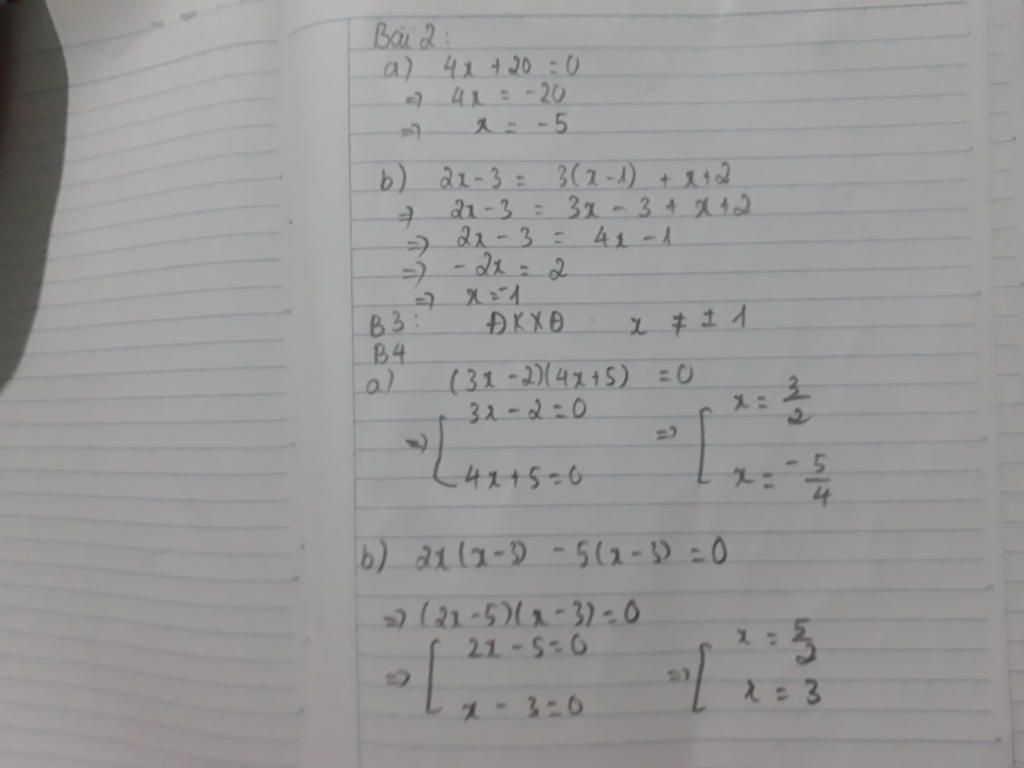 Bài 2:
a) 4x + 20 = 0
=> 4x = -20
=> x = -5
b) 2x - 3 = 3(x - 1) + x + 2
=> 2x - 3 = 3x - 3 + x + 2
=> 2x - 3 = 4x - 1
=> -2x = 2
=> x = -1
B3: ĐKXĐ x ≠ ± 1
B4
a) (3x - 2)(4x + 5) = 0
=> [ 3x - 2 = 0 => [ x = 3/2
4x + 5 = 0 x = -5/4
b) 2x(x - 3) - 5(x - 3) = 0
=> (2x - 5)(x - 3) = 0
=> [ 2x - 5 = 0 => [ x = 5/2
x - 3 = 0 x = 3